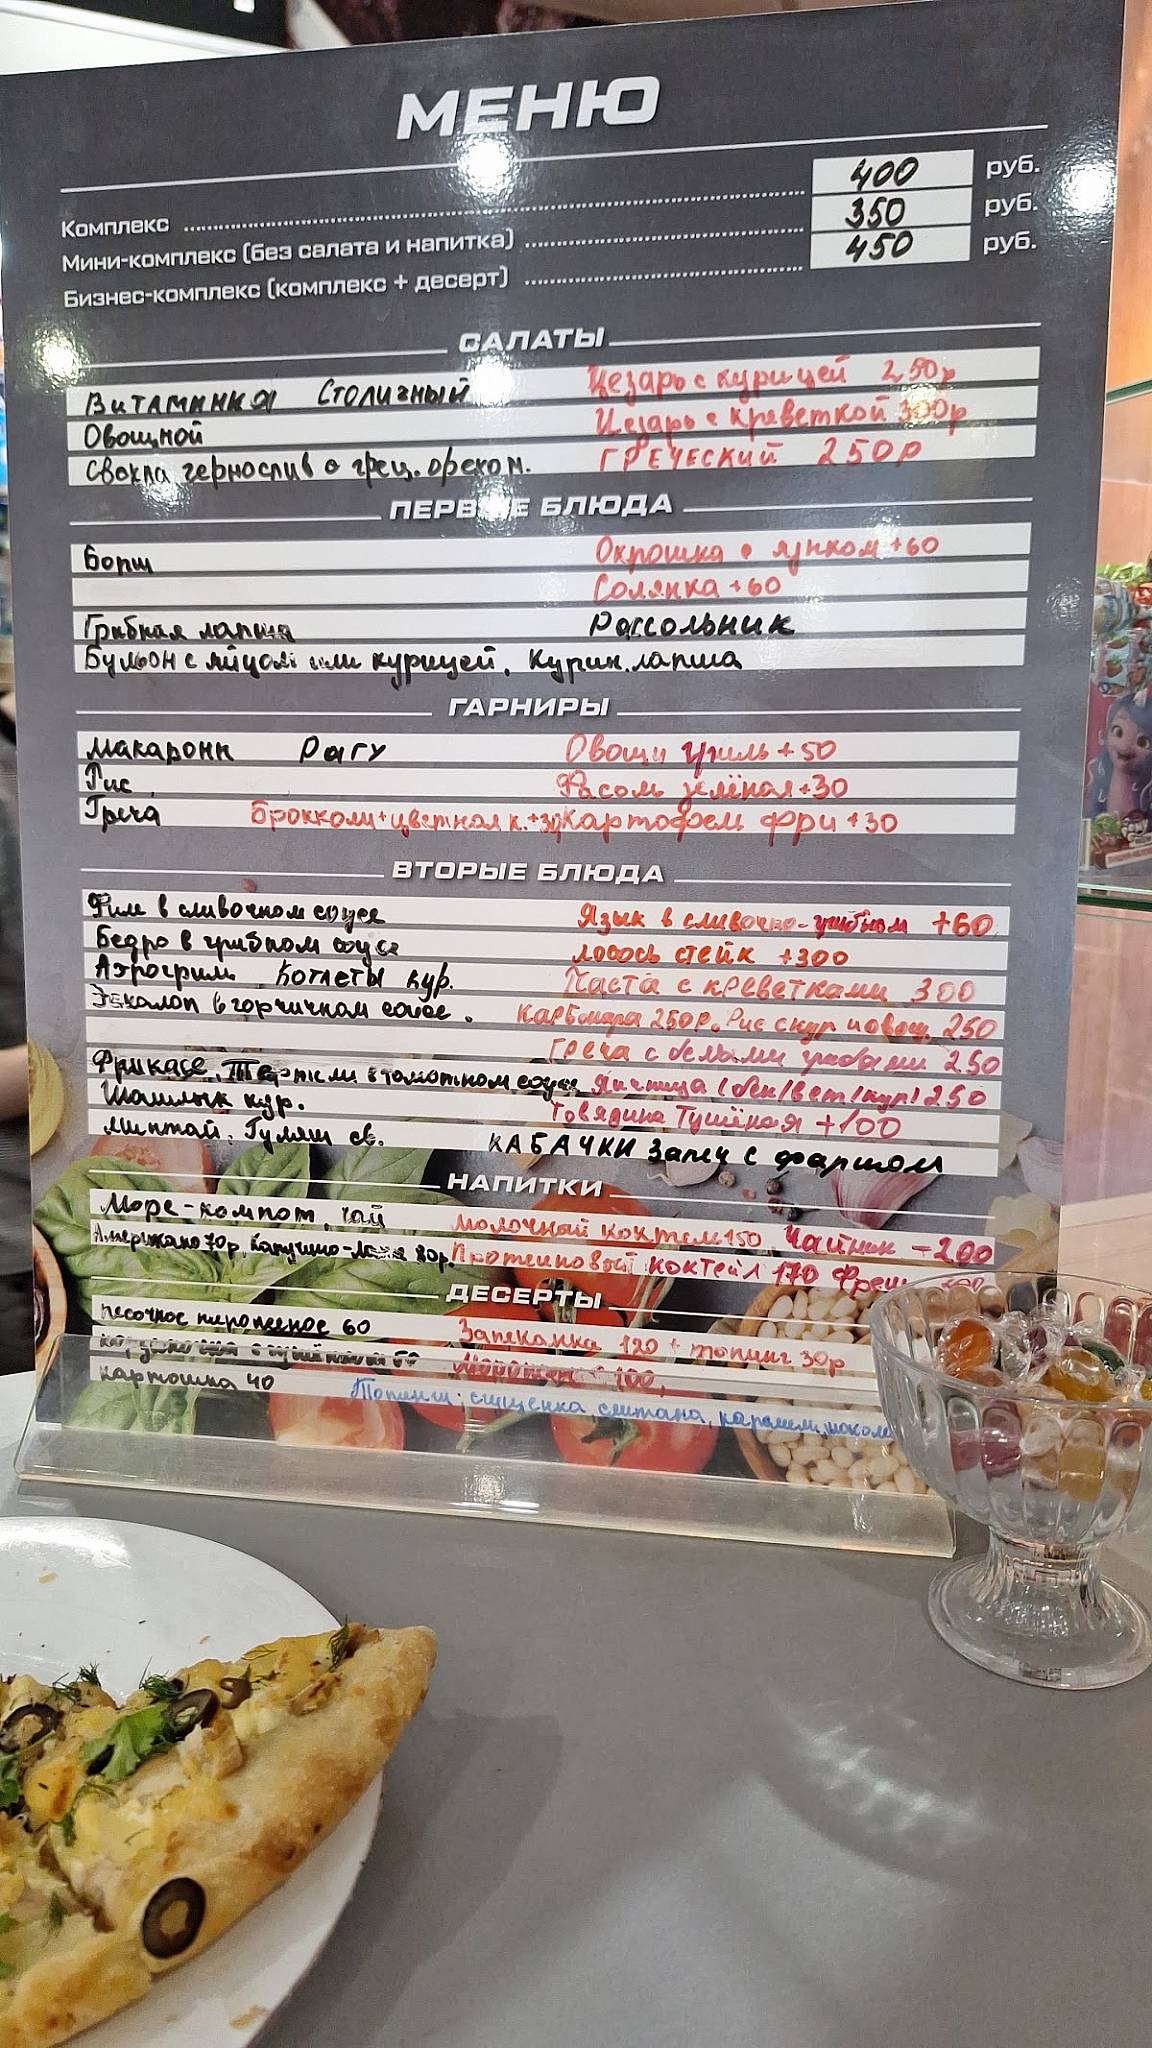 МЕНЮ
Комплекс 400 руб.
Мини-комплекс (без салата и напитка) 350 руб.
Бизнес-комплекс (комплекс + десерт) 450 руб.
САЛАТЫ
Витаминка Столичный Цезарь с курицей 250р
Овощной Цезарь с креветкой 300р
Свекла чернослив с грец. орехом. ГРЕЧЕСКИЙ 250р
ПЕРВЫЕ БЛЮДА
Борщ Окрошка с языком +60
Солянка +60
Грибная лапша Рассольник
Бульон с яйцом или курицей. Курин. лапша
ГАРНИРЫ
Макароны Рагу Овощи гриль +50
Рис Фасоль зелёная +30
Греча Брокколи + цветная к. +30 Картофель фри +30
ВТОРЫЕ БЛЮДА
Филе в сливочном соусе Язык в сливочно-грибном +60
Бедро в грибном соусе лосось стейк +300
Аэрогриль Котлеты кур. Паста с креветками 300
Эскалоп в горчичном соусе. Карбонара 250р. Рис с кур и овощ. 250
Греча с белыми грибами 250
Фрикасе, Тефтели в томатном соусе Яичница (бек/вет/кур) 250
Шашлык кур. Говядина Тушёная +100
минтай, Гуляш св. КАБАЧКИ Запеч с фаршом
НАПИТКИ
Морс-компот, чай молочный коктель 150 Чайник - 200
Американо 70р, Капучино- 80р. Протеиновый коктейл 170
ДЕСЕРТЫ
песочное пирожное 60 Запеканка 120 + топинг 30р
100
картошка 40 Топинги: сгущенка сметана, карамель,